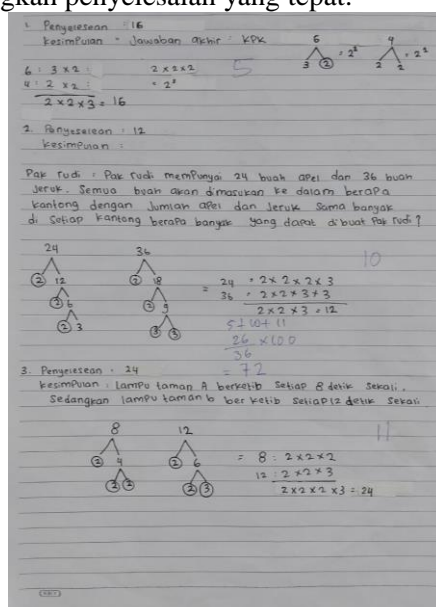 gkan penyelesaian yang tepat.
1. Penyelesean : 16
Kesimpulan - Jawaban akhir : KPK
6 4
3 2 = 2² 2 2 = 2²
6 : 3 x 2 : 2 x 2 x 2
4 : 2 x 2 : = 2³
2 x 2 x 3 = 16
5
2. Penyeselean : 12
Kesimpulan :
Pak rudi : Pak rudi mempunyai 24 buah apel dan 36 buah
Jeruk. Semua buah akan dimasukan ke dalam berapa
kantong dengan Jumlah apel dan Jeruk Sama banyak
di Setiap kantong berapa banyak yang dapat dibuat Pak rudi ?
10
24 36
2 12 2 18
2 6 2 9
2 3 3 3
= 24 = 2 x 2 x 2 x 3
36 = 2 x 2 x 3 x 3
2 x 2 x 3 = 12
5 + 10 + 11
26 x 100
36
= 72
3. Penyelesean = 24
kesimpulan : Lampu taman A berketib Setiap 8 detik Sekali.
Sedangkan lampu taman b berketib Setiap 12 detik Sekali
11
8 12
2 4 2 6
2 2 2 3
= 8 : 2 x 2 x 2
12 : 2 x 2 x 3
2 x 2 x 2 x 3 = 24